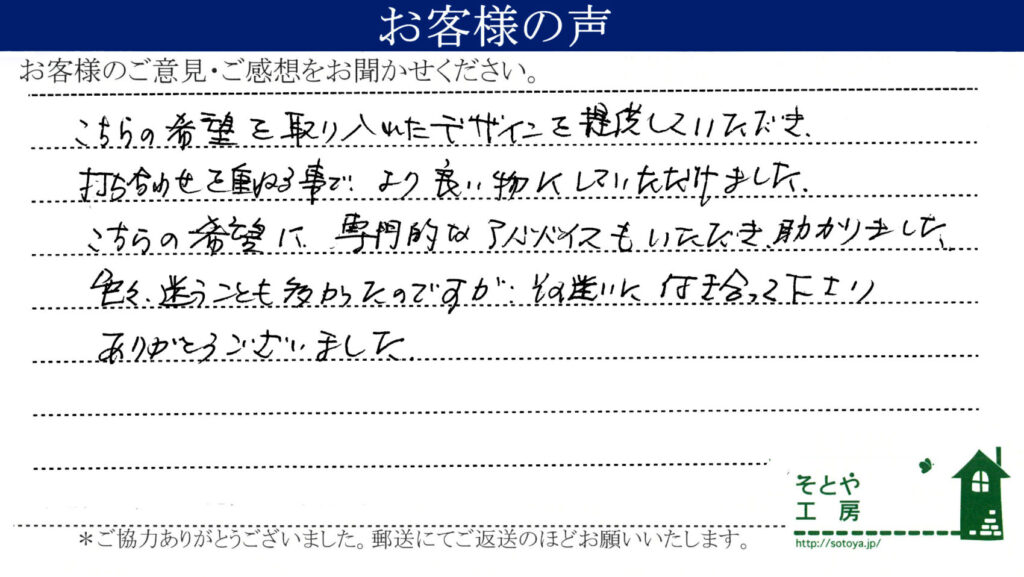 お客様の声
お客様のご意見・ご感想をお聞かせください。
こちらの希望を取り入れたデザインを提供していただき、
打ち合わせを重ねる事で、より良い物にしていただけました。
こちらの希望に、専門的なアドバイスもいただき、助かりました。
色々、迷うことも多かったのですが、その迷いに付き合って下さり
ありがとうございました。
そとや
工房
http://sotoya.jp/
＊ご協力ありがとうございました。郵送にてご返送のほどお願いいたします。